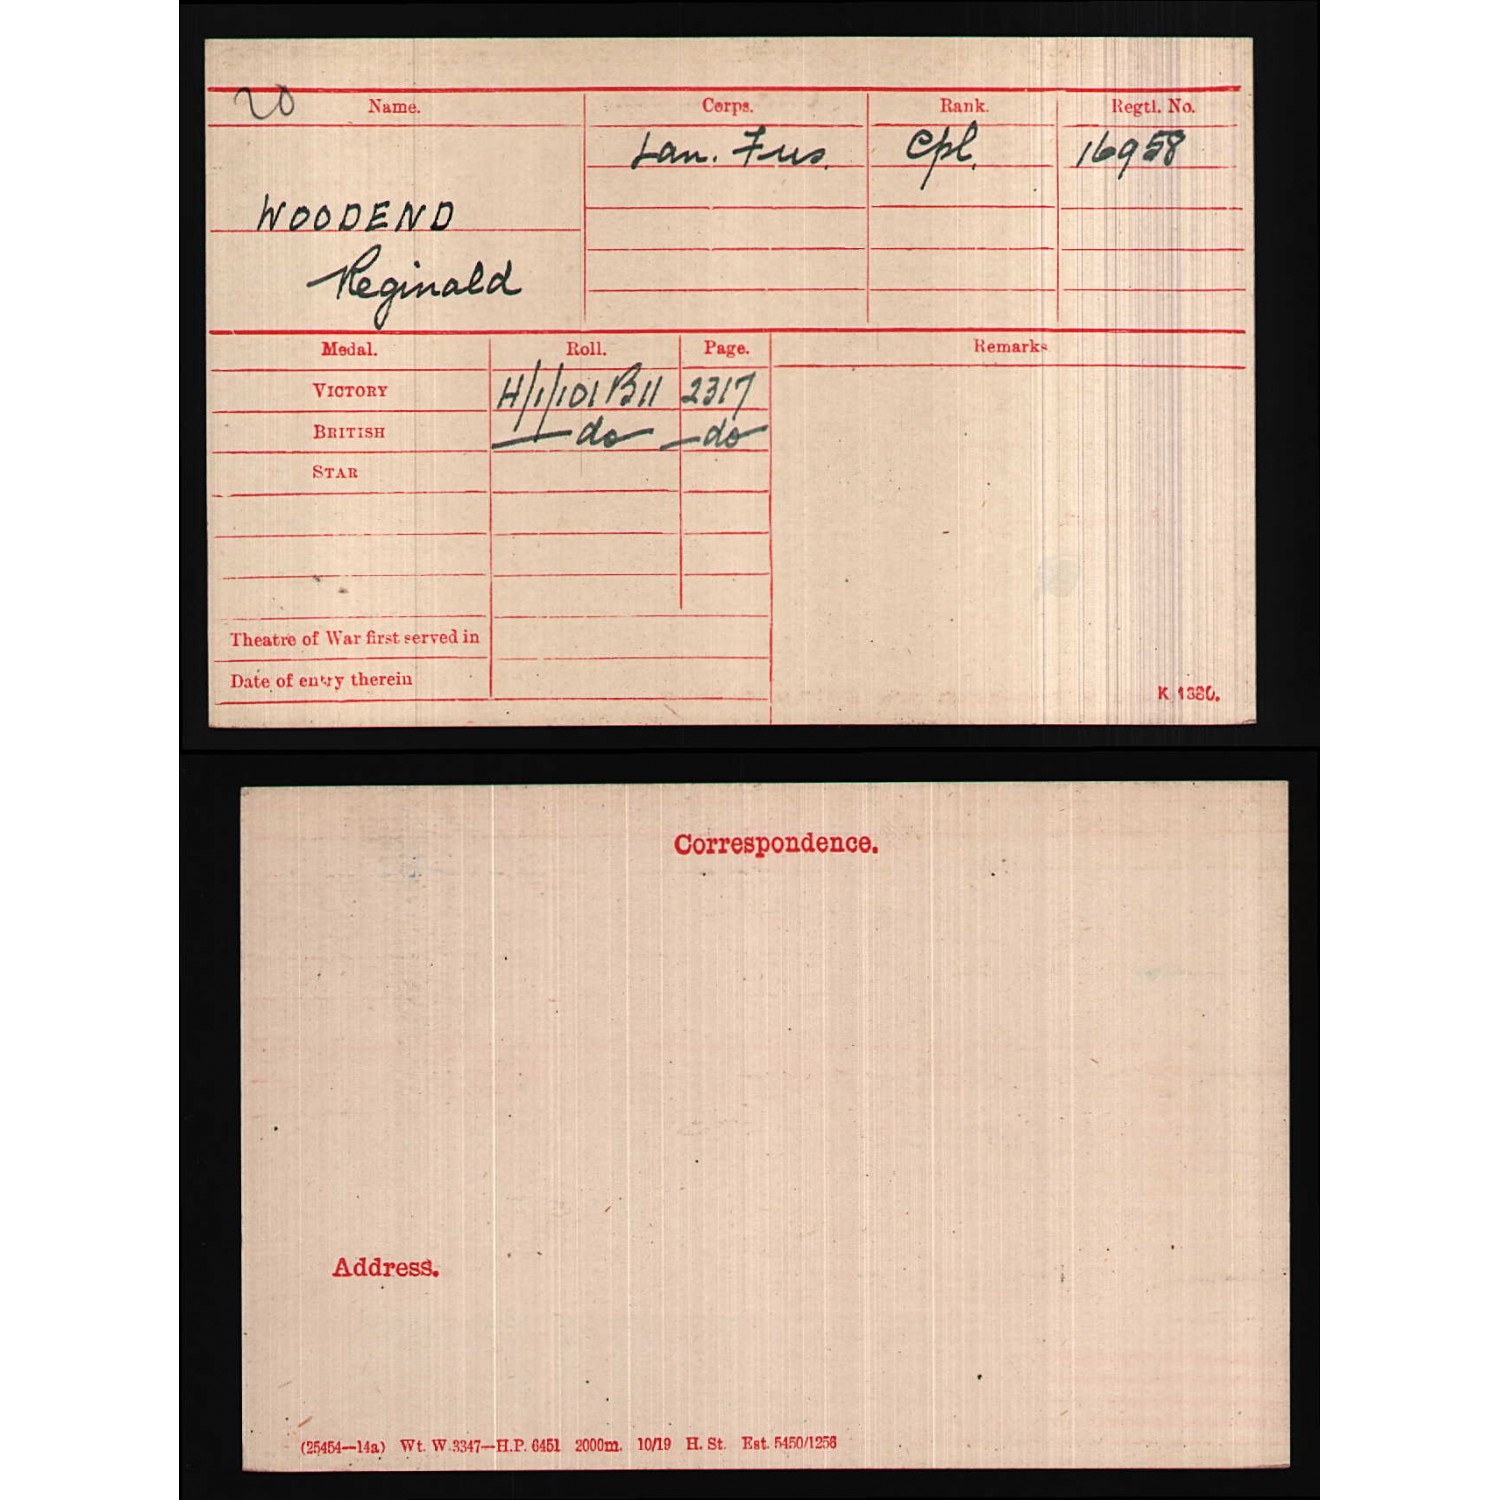 20 Name. Corps. Rank. Regtl. No.
Lan. Fus. Cpl. 16958
WOODEND
Reginald
Medal. Roll. Page. Remarks
VICTORY H/1/101 B11 2317
BRITISH —do— —do—
STAR
Theatre of War first served in
Date of entry therein
K 1380.
Correspondence.
Address.
(25454—14a) Wt. W.3347—H.P. 6451 2000m. 10/19 H. St. Est. 5450/1256